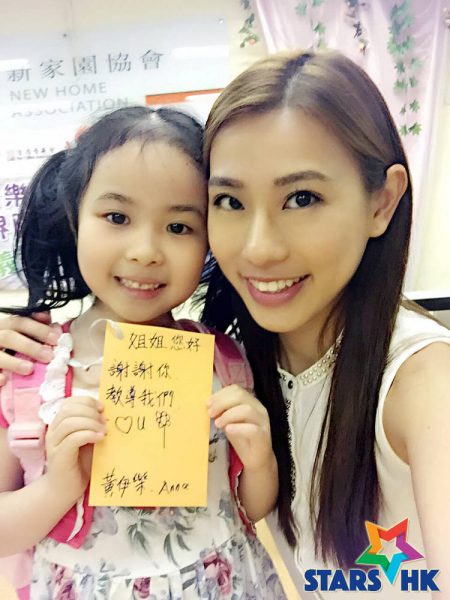 新家園協會
NEW HOME
ASSOCIATION
樂
姐姐 您好
謝謝你
教導我們
♡ u
黃伊樂. Anna
STARS HK